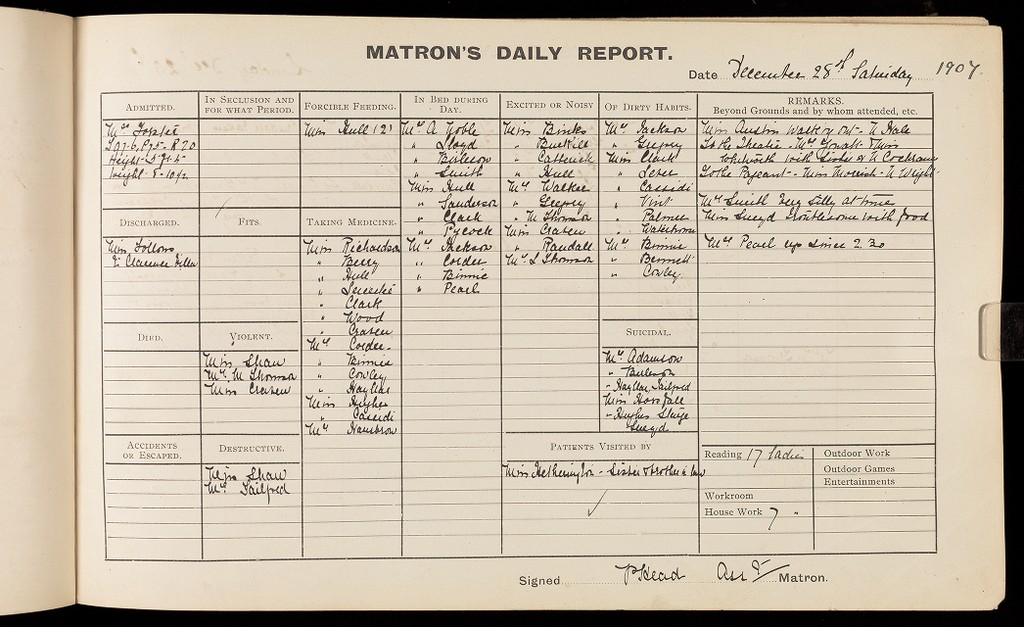 MATRON'S DAILY REPORT.
Date December 28th Saturday 1907.
ADMITTED.
Mrs
T 97.6, P 75 - R 20
Height - 5 ft. 5
Weight 8 - 10½
DISCHARGED.
Miss Follows
to Clarence Villa
DIED.
ACCIDENTS
OR ESCAPED.
IN SECLUSION AND
FOR WHAT PERIOD.
FITS.
VIOLENT.
Miss Shaw
Mrs M Thomson
Miss Craven
DESTRUCTIVE.
Miss Shaw
Mrs Tailfred
FORCIBLE FEEDING.
Miss Hull (2)
TAKING MEDICINE.
Miss Richardson
" Berry
" Hull
"
" Clark
" Wood
" Craven
Mrs Corder
" Binnie
" Cowley
" Hayllar
Miss Hughes
" Cassidi
Mrs
IN BED DURING
DAY.
Mrs A Noble
" Lloyd
" Burleson
" Smith
Miss Hull
" Sanderson
" Clark
" Pycock
Mrs Jackson
" Corder
" Binnie
" Pearl
EXCITED OR NOISY
Miss Binks
"
" Catterick
" Hull
Mrs Walker
"
" M Thomson
Miss Craven
" Randall
Mrs L Thomson
OF DIRTY HABITS.
Mrs Jackson
"
Miss Clark
"
" Cassidi
" Vint
" Palmer
"
Mrs Binnie
" Bennett
" Cowley
SUICIDAL.
Mrs Adamson
" Burleson
" Hayllar, Tailfred
Miss Horsfall
" Hughes
Sneyd
PATIENTS VISITED BY
Miss Hetherington - Sister & brother in law
REMARKS.
Beyond Grounds and by whom attended, etc.
Miss Austin Walking out - N Hale
To the Theatre - Mrs & Miss
Whitworth with Sister & N Cochrane
To the Pageant - Miss - N Wright
Mrs Smith very silly at times
Miss Sneyd troublesome with food
Mrs Pearl up since 2.30
Reading 17 ladies
Workroom
House Work 7 "
Outdoor Work
Outdoor Games
Entertainments
Signed P Head Asst Matron.